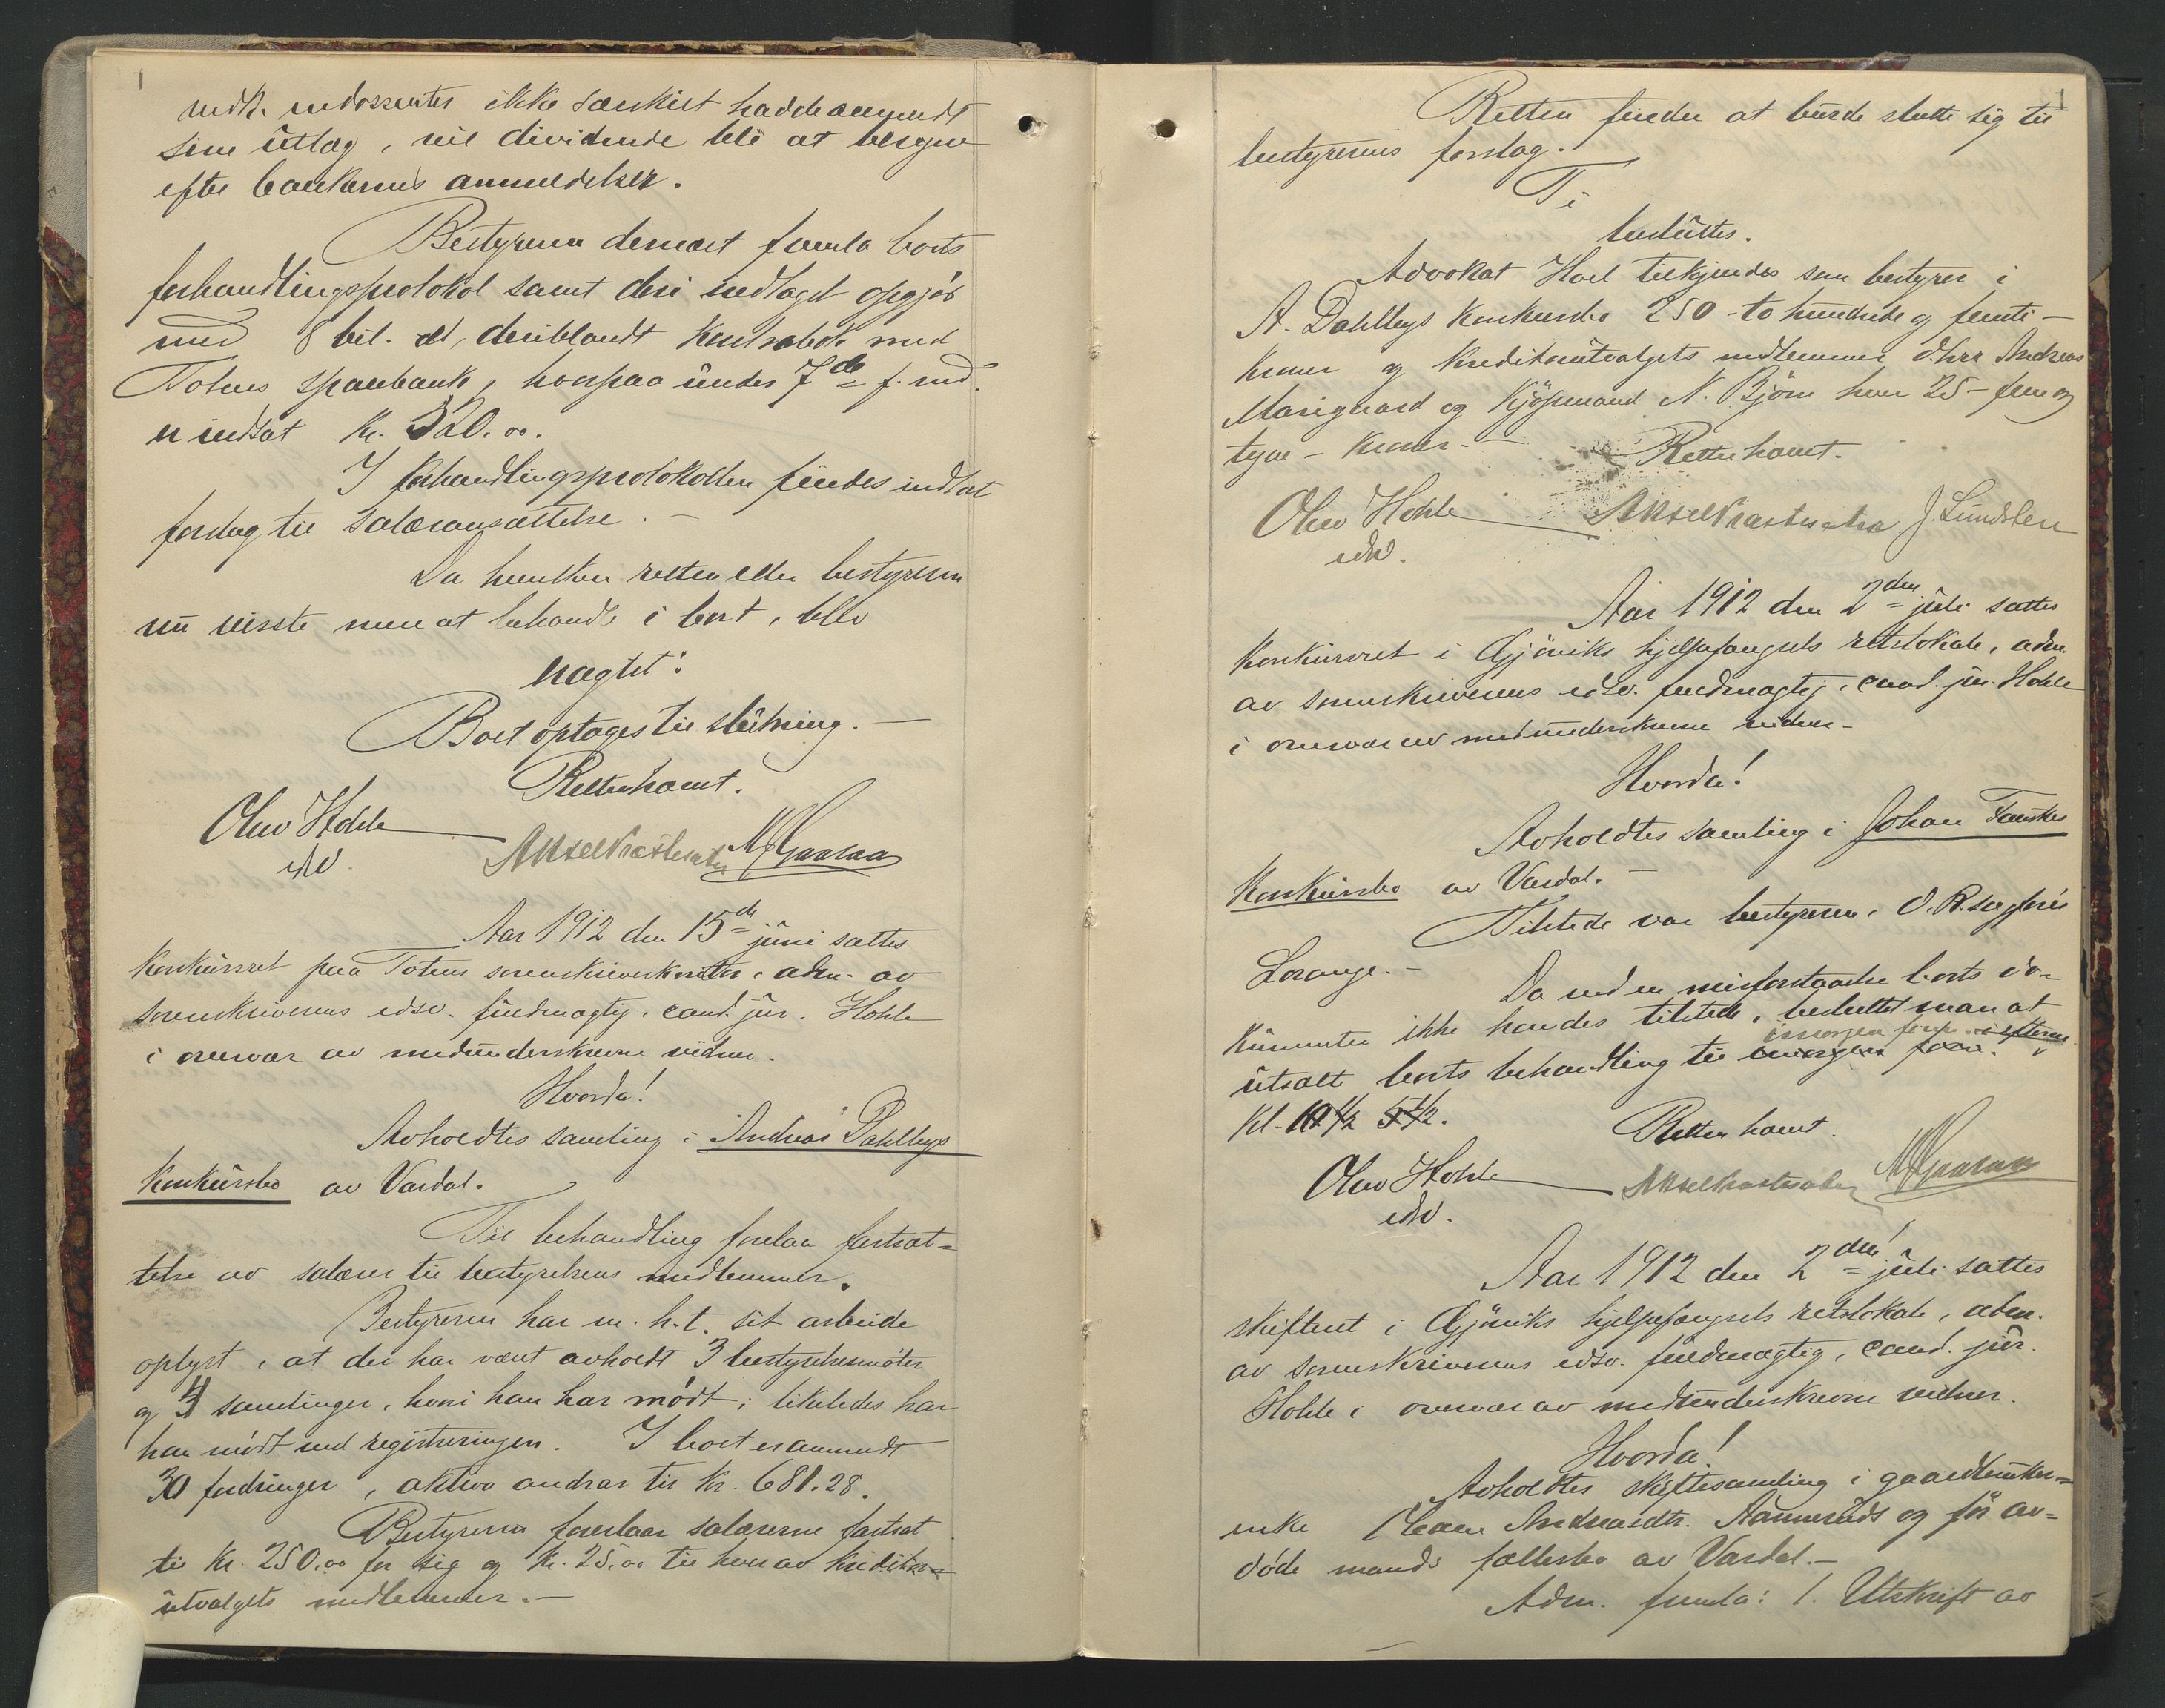 indk. endossenter ikke særskilt hadde anmeldt
sine utlæg, vil dividende bli at beregne
efter bankernes anmeldelser.
Bestyreren dernæst fremla boets
forhandlingsprotokol samt deri indtaget opgjør
med 8 bil. , deriblandt kontrabok med
Totens sparebank, hvorpaa under 7de f. md.
er indsat kr. 320.00.
I forhandlingsprotokollen findes indtat
forslag til salæransættelse. —
Da hverken retten eller bestyreren
nu visste mere at behandle i boet, blev
nægtet:
Boet optages til slutning. —
Retten hævet.
Olav Hohle
edsv.
M Gaaraa
Aar 1912 den 15de juni sattes
konkursret paa Totens sorenskriverkontor, adm. av
sorenskriverens edsv. fuldmægtig, cand. jur. Hohle
i overvær av medunderskrevne vidner.
Hvorda!
Avholdtes samling i Andreas Dahlbys
konkursbo av Vardal.
Til behandling forelaa fastsæt=
telse av salærer til bestyrelsens medlemmer.
Bestyreren har m. h. t. sit arbeide
oplyst, at der har været avholdt 3 bestyrelsesmøter
og 4 samlinger, hvori han har mødt; likeledes har
han mødt ved registreringen. I boet er anmeldt
30 fordringer, aktiva andrar til kr. 681.28.
Bestyreren foreslaar salærerne fastsat
til kr. 250.00 for sig og kr. 25.00 til hver av kreditor=
utvalgets medlemmer. —
Retten finder at burde slutte sig til
bestyrerens forslag.
Ti
besluttes.
Advokat Hoel tilkjendes som bestyrer i
A. Dahlbys konkursbo 250 - to hundrede og femti -
kroner og kreditorutvalgets medlemmer d'hrr Andreas
og kjøpmand N. Bjørn hver 25 - fem og
tyve - kroner. —
Retten hævet.
Olav Hohle
edsv.
J. Lundsten
Aar 1912 den 2den juli sattes
konkursret i Gjøviks hjelpefængsels retslokale, adm.
av sorenskriverens edsv. fuldmægtig, cand. jur. Hohle
i overvær av medunderskrevne vidner -
Hvorda!
Avholdtes samling i Johan
konkursbo av Vardal. —
Tilstede var bestyreren, O. R. sagfører
Lorange. —
Da ved en misforstaaelse boets do-
kumenter ikke havdes tilstede, besluttet man at
imorgen form. i efterm.
utsætte boets behandling til imorgen form.
Kl. 10 1/2 5 1/2.
Retten hævet.
Olav Hohle
edsv.
M Gaaraa
Aar 1912 den 2den juli sattes
skifteret i Gjøviks hjelpefængsels retslokale, adm.
av sorenskriverens edsv. fuldmægtig, cand. jur.
Hohle i overvær av medunderskrevne vidner.
Hvorda!
Avholdtes skiftesamling i gaardbruker=
enke Andreasdtr. Aanneruds og før av=
døde mands fællesbo av Vardal. —
Adm. fremla: 1. Utskrift av